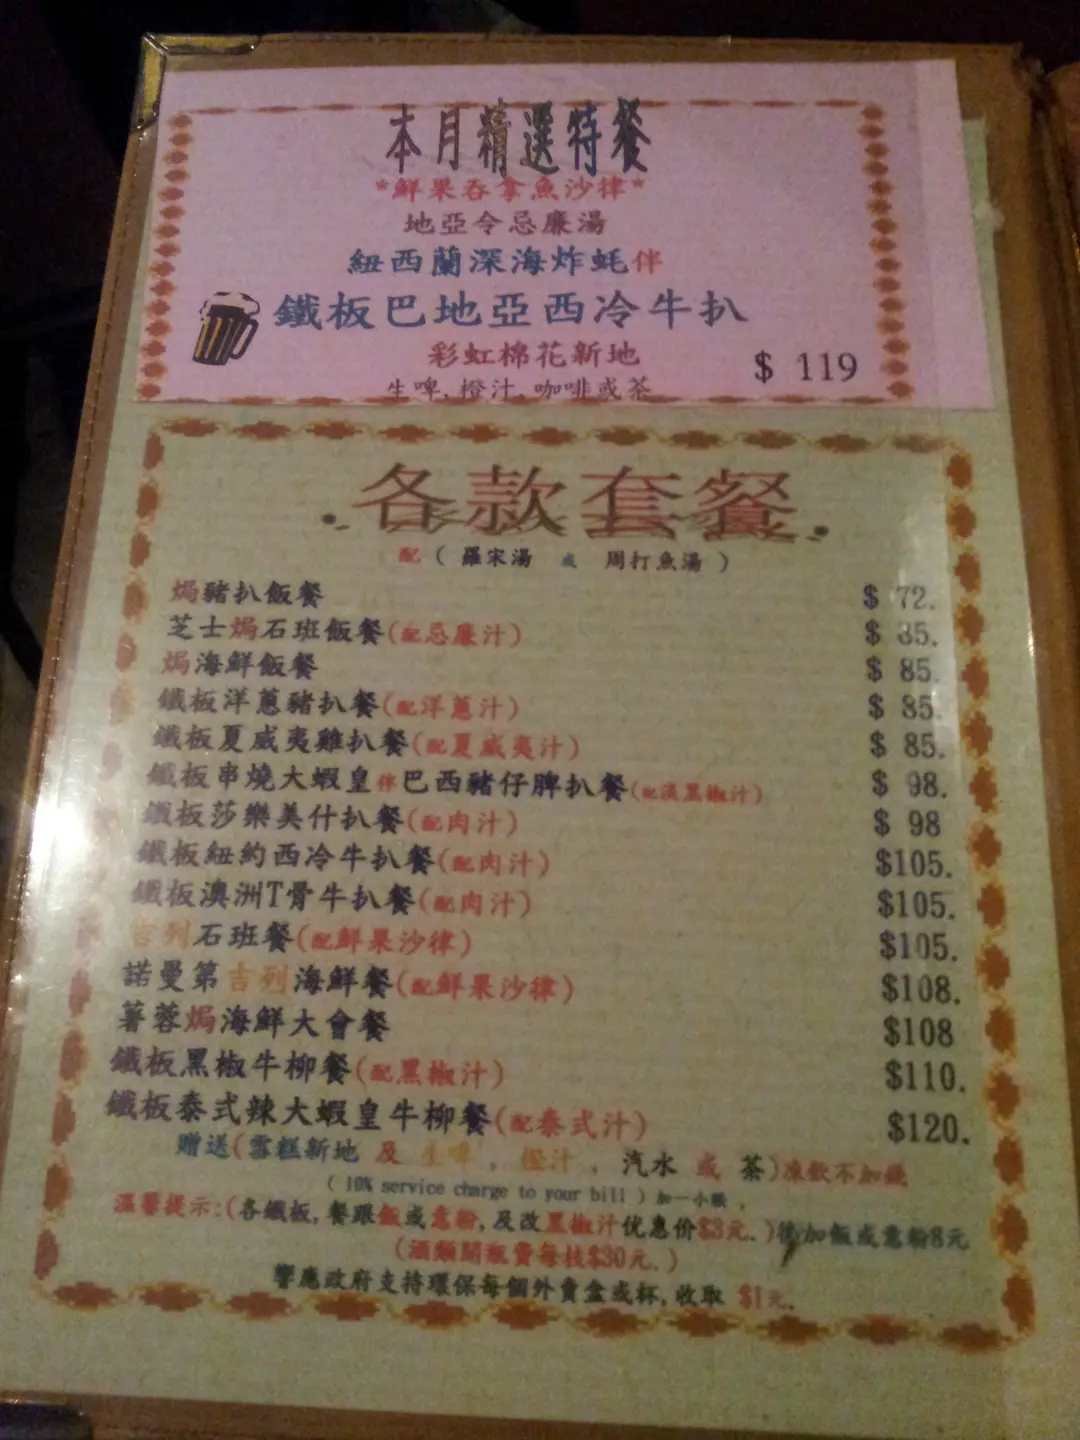 本月精選特餐
*鮮果吞拿魚沙律*
地亞令忌廉湯
紐西蘭深海炸蚝伴
鐵板巴地亞西冷牛扒
彩虹棉花新地
$ 119
生啤,橙汁,咖啡或茶
各款套餐
配 ( 羅宋湯 或 周打魚湯 )
焗豬扒飯餐 $ 72.
芝士焗石班飯餐(配忌廉汁) $ 85.
焗海鮮飯餐 $ 85.
鐵板洋蔥豬扒餐(配洋蔥汁) $ 85.
鐵板夏威夷雞扒餐(配夏威夷汁) $ 85.
鐵板串燒大蝦皇伴巴西豬仔脾扒餐(配黑椒汁) $ 98.
鐵板莎樂美什扒餐(配肉汁) $ 98
鐵板紐約西冷牛扒餐(配肉汁) $105.
鐵板澳洲T骨牛扒餐(配肉汁) $105.
吉列石班餐(配鮮果沙律) $105.
諾曼第吉列海鮮餐(配鮮果沙律) $108.
薯蓉焗海鮮大會餐 $108
鐵板黑椒牛柳餐(配黑椒汁) $110.
鐵板泰式辣大蝦皇牛柳餐(配泰式汁) $120.
贈送(雪糕新地 及 生啤 , 橙汁 , 汽水 或 茶)凍飲不加錢
( 10% service charge to your bill ) 加一小賬 ,
溫馨提示:(各鐵板,餐跟飯或意粉,及改黑椒汁优惠价$3元.)後加飯或意粉8元
(酒類開瓶費每枝$30元.)
響應政府支持環保每個外賣盒或杯,收取 $1元.